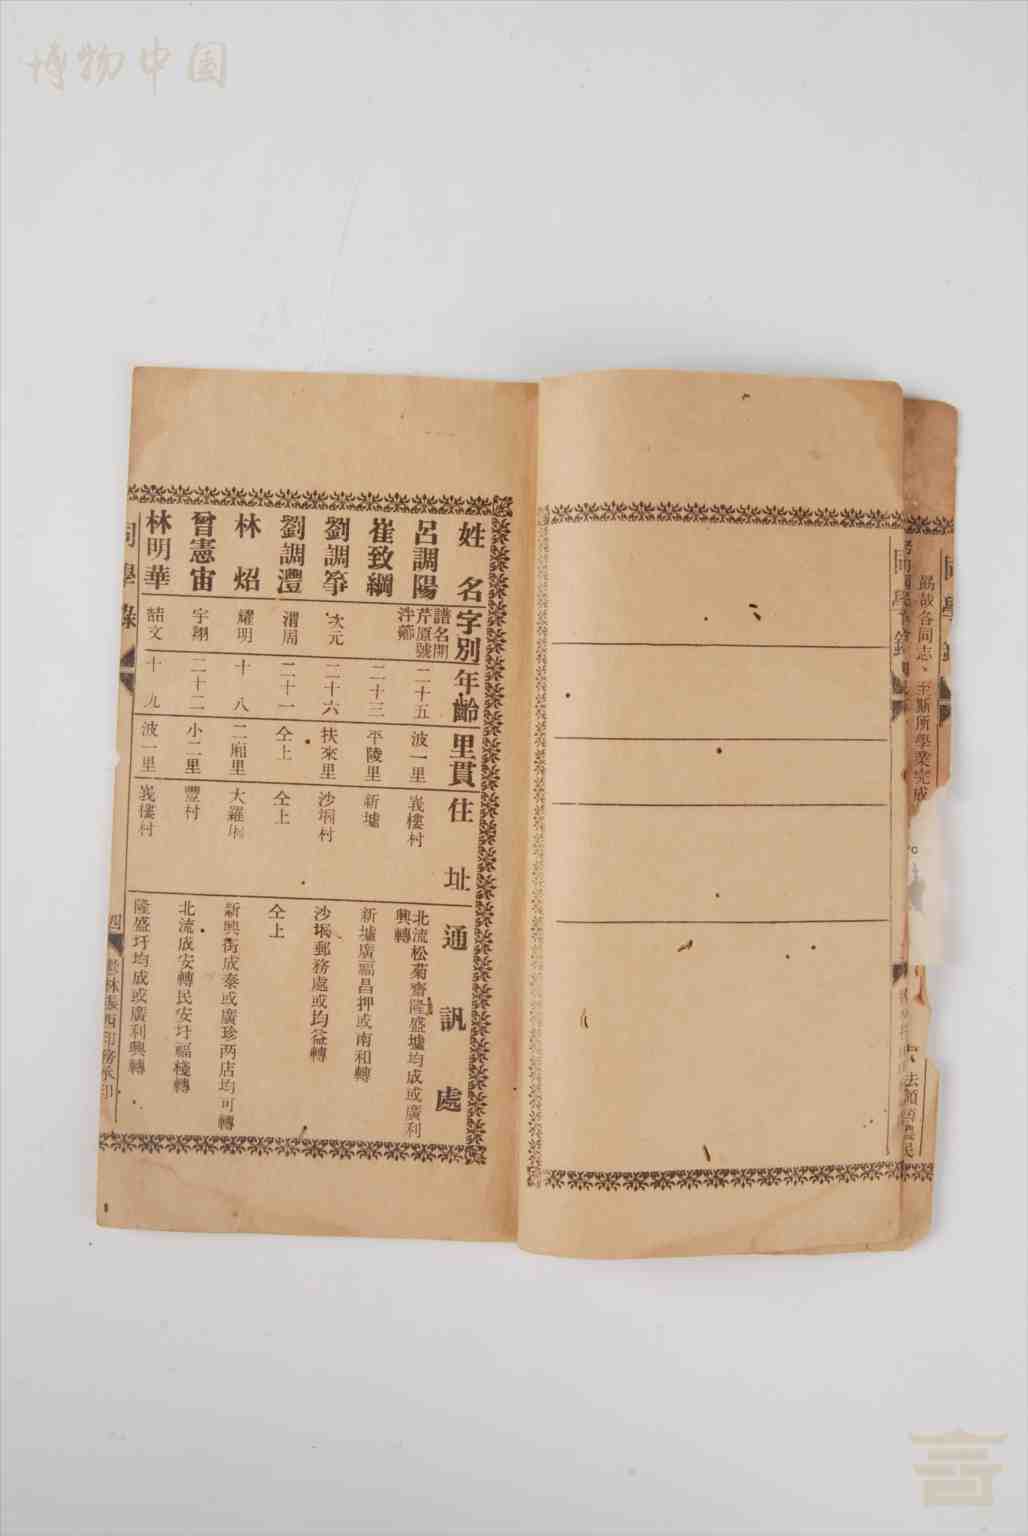 博物中国
姓名 字別 年齡 里貫 住址 通訊處
呂調陽 譜名開芹原號泮薌 二十五 波一里 峩樓村 北流松菊齋隆盛墟均成或廣利興轉
崔致綱 二十三 平陵里 新墟 新墟廣福昌押或南和轉
劉調筝 次元 二十六 扶來里 沙垌村 沙塲郵務處或均益轉
劉調灃 渭周 二十一 仝上 仝上 仝上
林炤 耀明 十八 二廂里 大羅垌 新興街成泰或廣珍两店均可轉
曾憲宙 宇翔 二十二 小二里 豐村 北流成安轉民安圩福棧轉
林明華 喆文 十九 波一里 峩樓村 隆盛圩均成或廣利興轉
同學錄 四
同學錄
勗哉各同志、至斯所學業完成